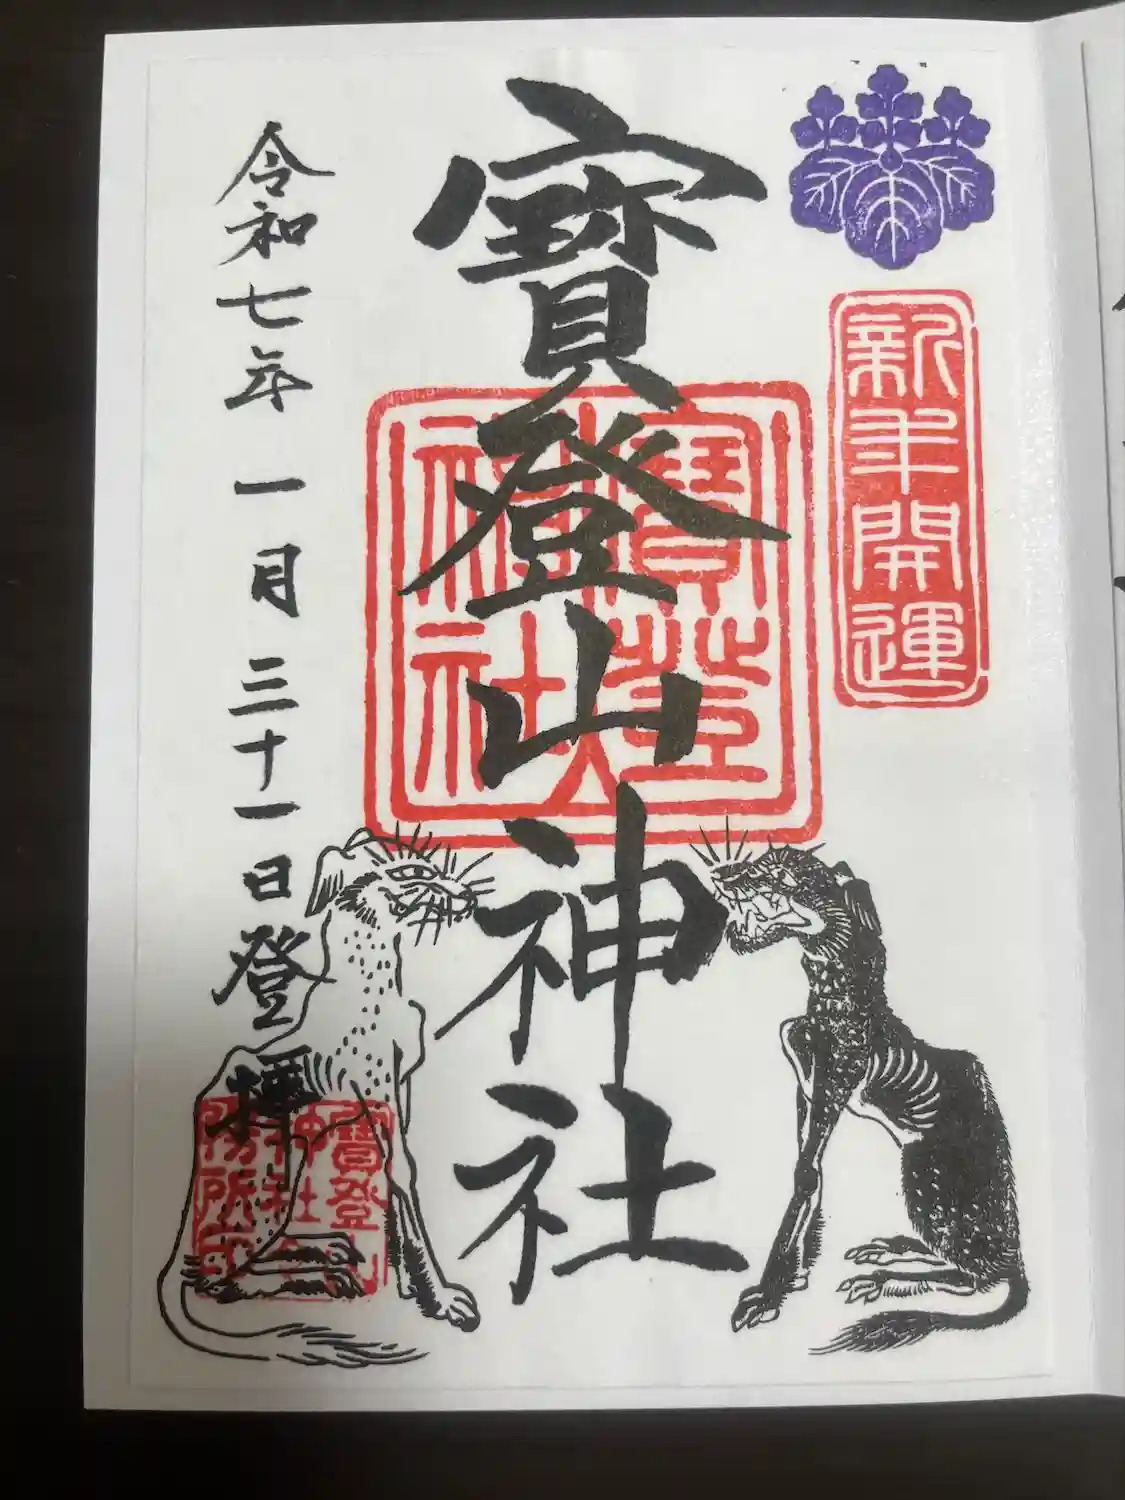 新年開運
寶登山神社
寶登
神社
令和七年一月三十一日登拝
寶登山
神社
務所